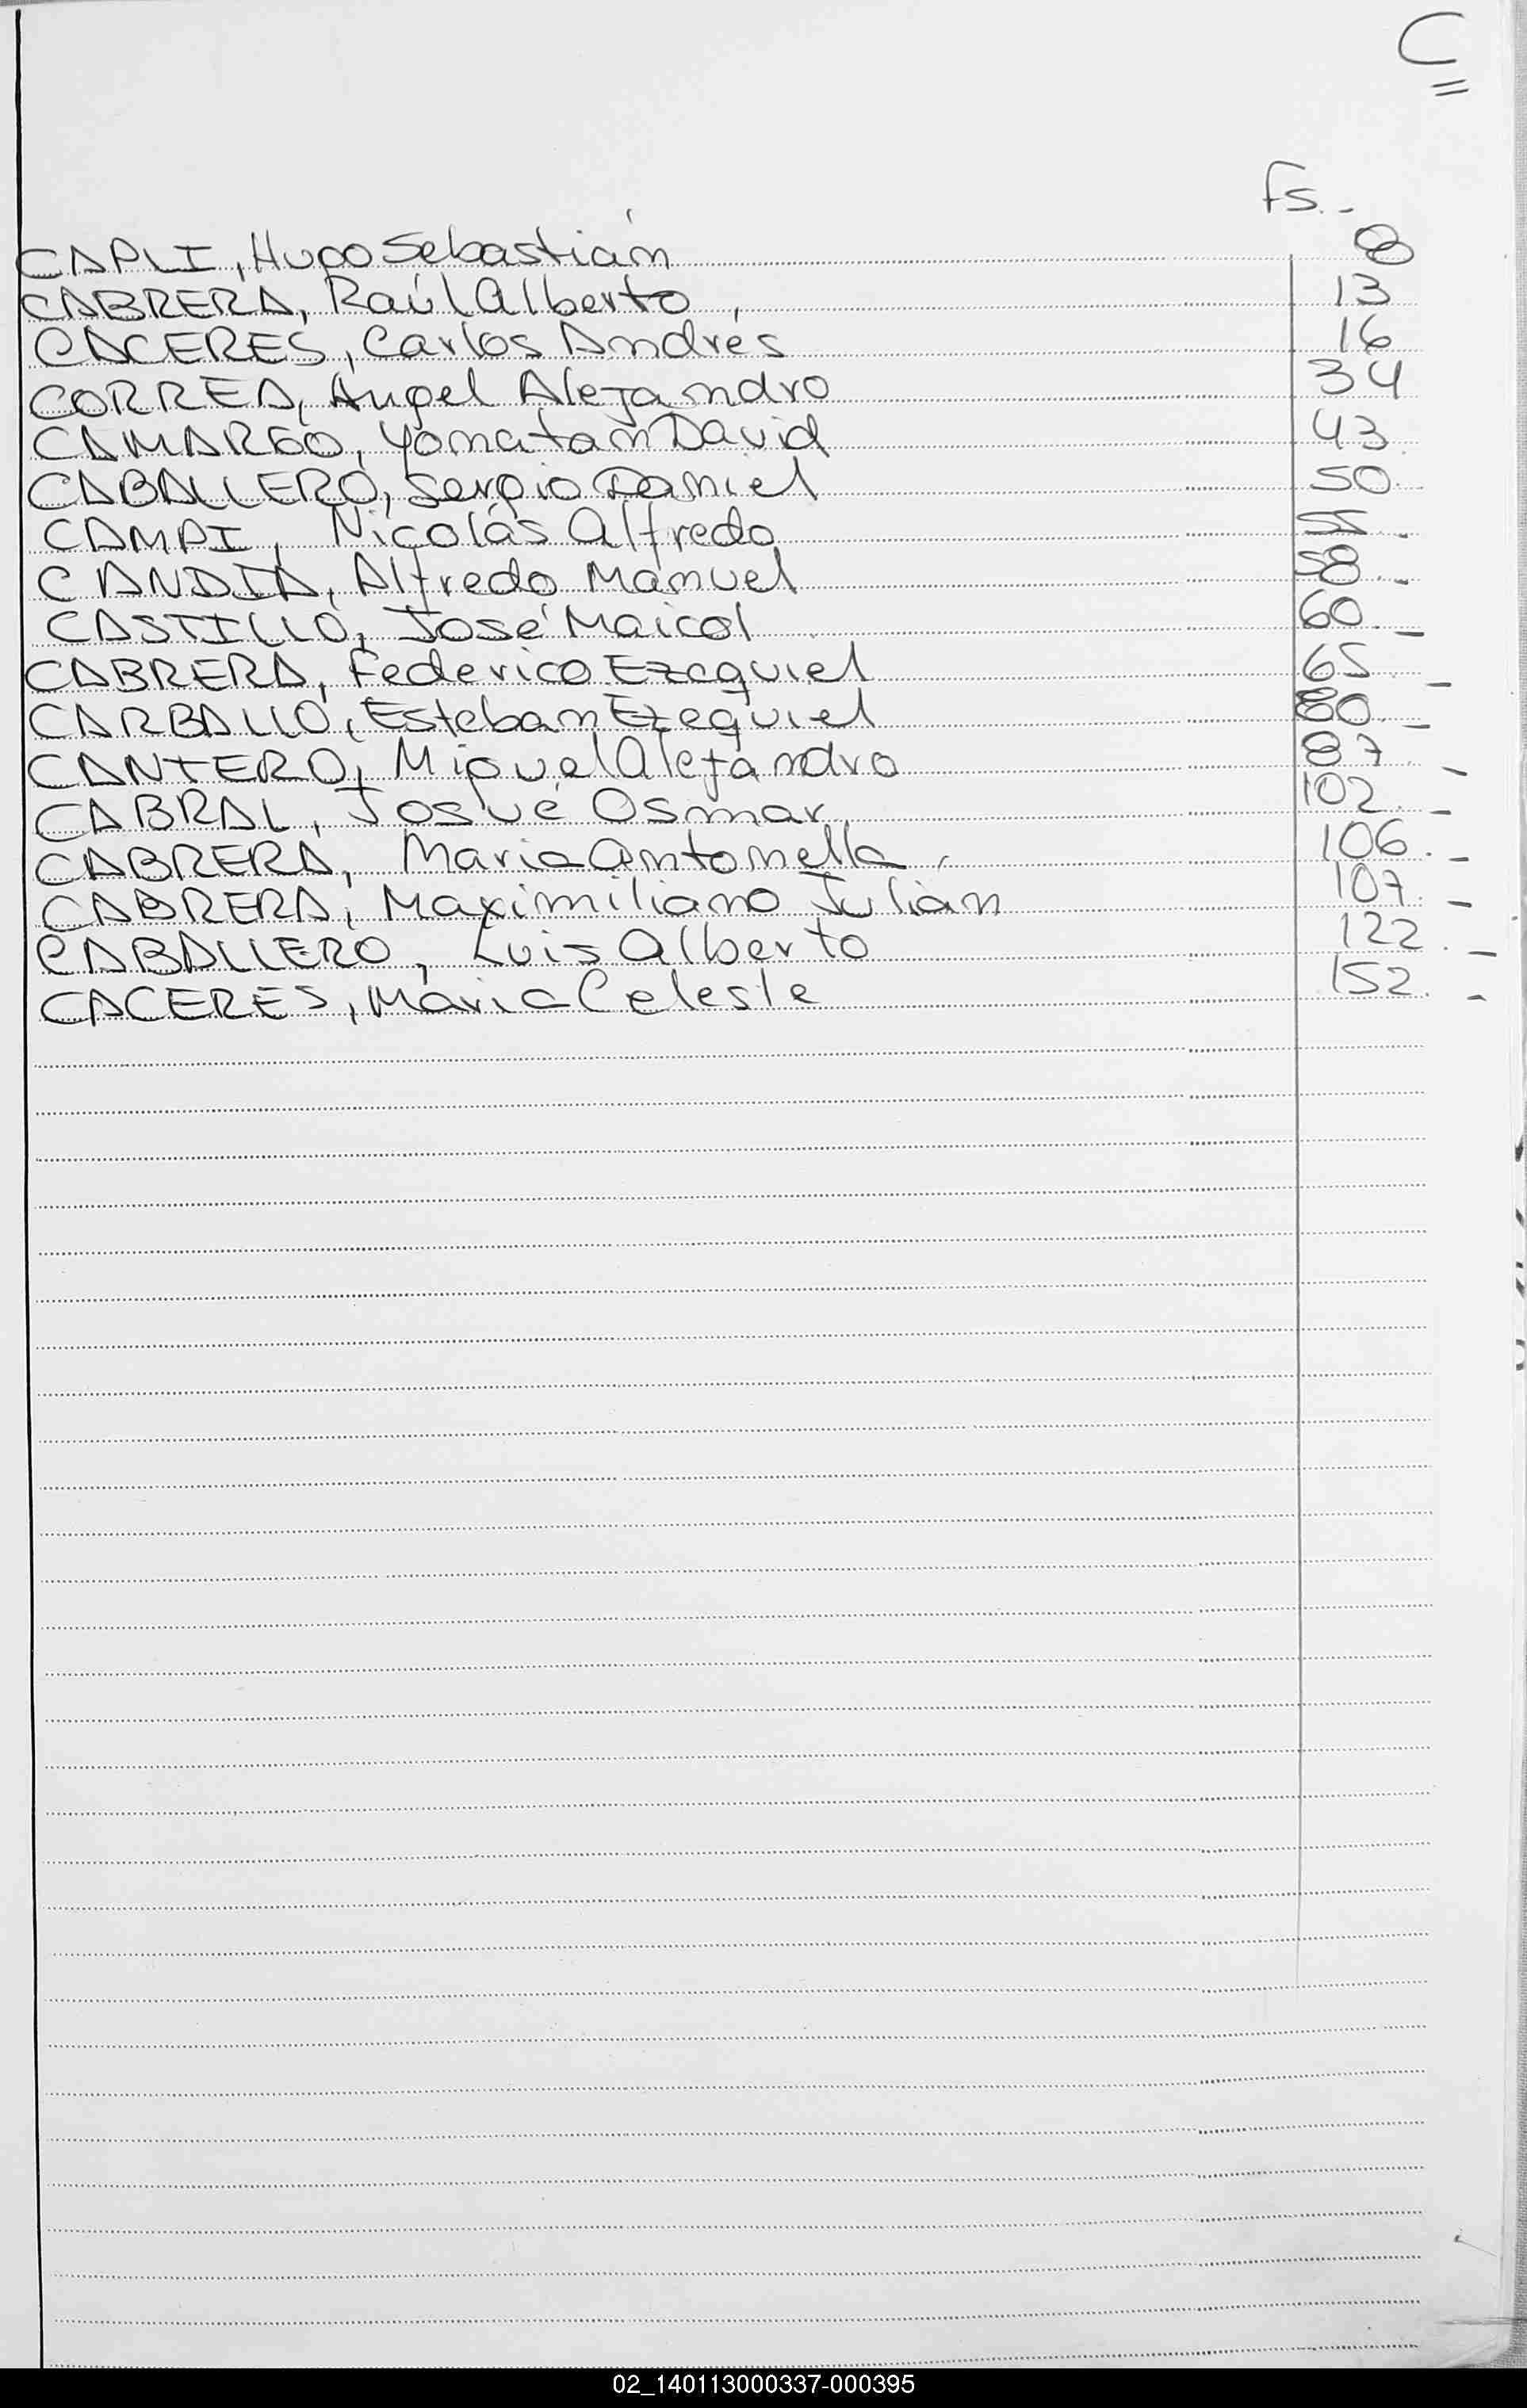 C
Fs.-
CAPLI, Hugo Sebastián 8
CABRERA, Raúl Alberto 13
CACERES, Carlos Andrés 16
CORREA, Angel Alejandro 34
CAMARGO, Yonatan David 43
CABALLERO, Sergio Daniel 50
CAMPI, Nicolás Alfredo 55.-
CANDIA, Alfredo Manuel 58.-
CASTILLO, José Maicol 60.-
CABRERA, Federico Ezequiel 65.-
CARBALLO, Esteban Ezequiel 80.-
CANTERO, Miguel Alejandro 87.-
CABRAL, Josué Osmar 102.-
CABRERA, Maria Antonella 106.-
CABRERA, Maximiliano Julián 107.-
CABALLERO, Luis Alberto 122.-
CACERES, María Celeste 152.-
02_140113000337-000395